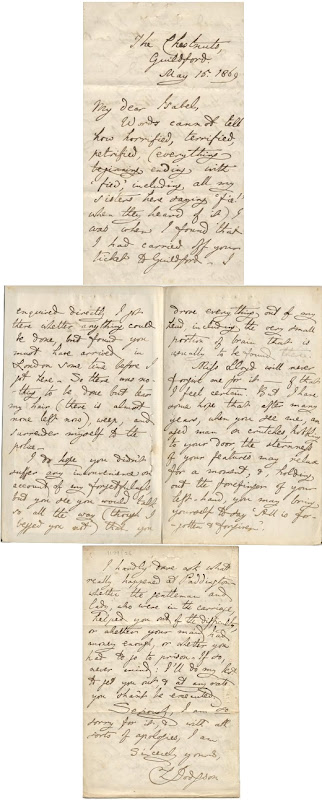 The Chestnuts,
Guildford.
May 15. 1869
My dear Isabel,
Words cannot tell
how horrified, terrified,
petrified, (everything
beginning ending with
"fied", including all my
sisters here saying "fie!"
when they heard of it) I
was when I found that
I had carried off your
ticket to Guildford – I
enquired directly I got
there whether anything could
be done, but found you
must have arrived in
London some time before I
got here – So there was no-
thing to be done but tear
my hair (there is almost
none left now), weep, and
surrender myself to the
police –
I do hope you didn't
suffer any inconvenience on
account of my forgetfulness
but you see you would talk
so all the way (though I
begged you not) that you
drove everything out of my
head including the very small
portion of brain that is
usually to be found there.
Miss Lloyd will never
forgive me for it – of that
I feel certain. But I have
some hope that after many
years, when you see me, an
aged man on crutches, hobbling
to your door, the sternness
of your features may relax
for a moment, & holding
out the forefinger of your
left-hand, you may bring
yourself to say "All is for-
gotten & forgiven".
I hardly dare ask what
really happened at Paddington,
whether the gentleman and
lady, who were in the carriage,
helped you out of the difficulty
or whether your maid had
money enough, or whether you
had to go to prison. If so,
never mind: I'll do my best
to get you out & at any rate
you shan't be executed.
Seriously, I am so
sorry for it, & with all
sorts of apologies, I am
Sincerely yours,
C L Dodgson